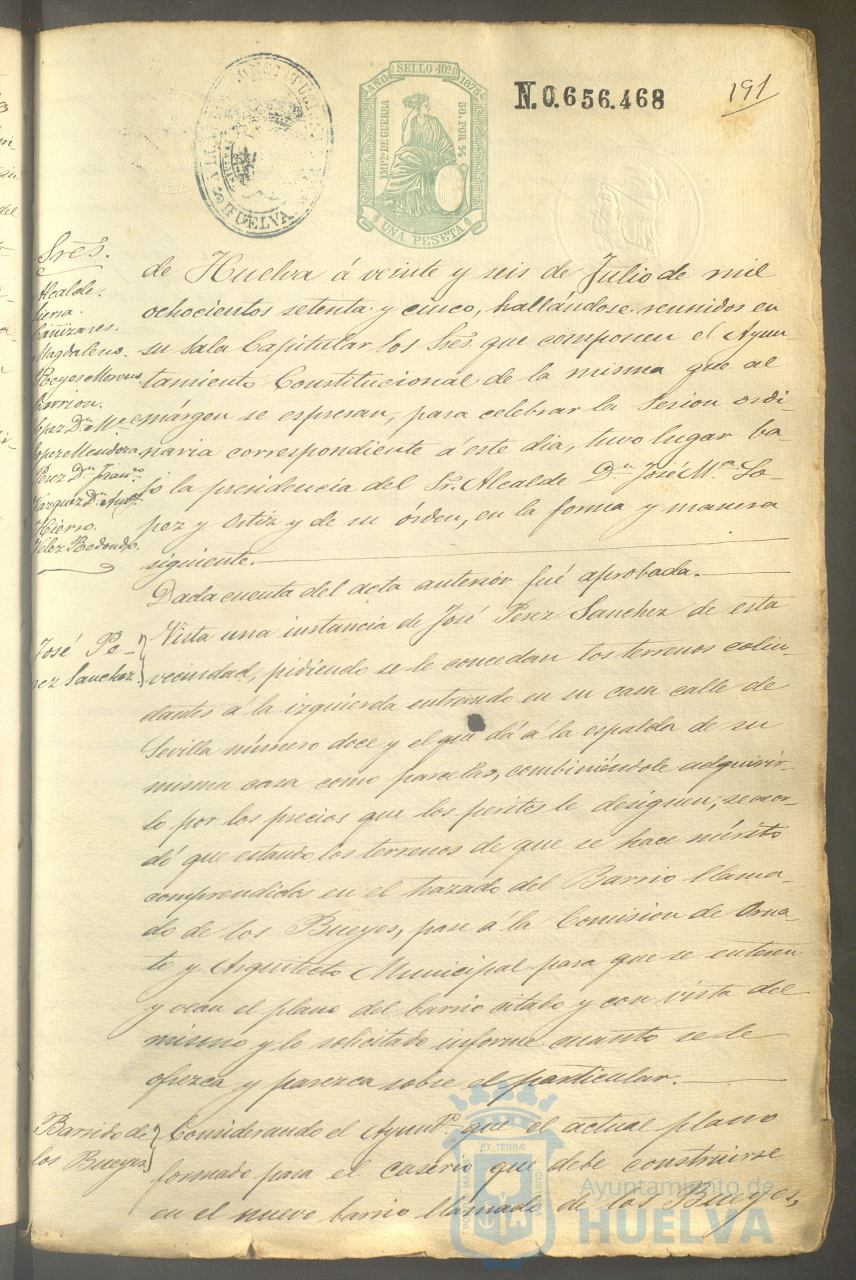 AÑO SELLO 10º 1875
IMPTO DE GUERRA
50. POR %
UNA PESETA
N.0.656.468
191
HUELVA
Sres.
Alcalde.
Cañizares.
Magdaleno.
Reyes Moreno
Carrion.
Lopez Dn. Me
Lopez Mendoza
Perez Dn. Franco
Vazquez Dn. Anto.
Hierro.
Velez Redondo.
de Huelva á veinte y seis de Julio de mil
ochocientos setenta y cinco, hallándose reunidos en
su Sala Capitular los Sres. que componen el Ayun-
tamiento Constitucional de la misma que al
márgen se espresan, para celebrar la Sesion ordi-
naria correspondiente á este dia, tuvo lugar ba-
jo la presidencia del Sr. Alcalde Dn. José Ma. Lo-
pez y Ortiz y de su órden, en la forma y manera
siguiente.
Dada cuenta del acta anterior fué aprobada.
José Pe-
rez Sanchez.
Vista una instancia de José Perez Sanchez de esta
vecindad, pidiendo se le concedan los terrenos colin-
dantes á la izquierda entrando en su casa calle de
Sevilla número doce y el que dá á la espalda de su
misma casa como parcelas, combiniéndole adquirir-
lo por los precios que los peritos le designen; se acor-
dó que estando los terrenos de que se hace mérito
comprendidos en el trazado del Barrio llama-
do de los Bueyes, pase á la Comision de Orna-
to y Arquitecto Municipal para que se enteren
y vean el plano del barrio citado y con vista del
mismo y lo solicitado informe cuanto se le
ofrezca y parezca sobre el particular.
Barrio de
los Bueyes
Considerando el Ayunto. que el actual plano
formado para el caserio que debe construirse
en el nuevo barrio llamado de los Bueyes,
Ayuntamiento de
HUELVA